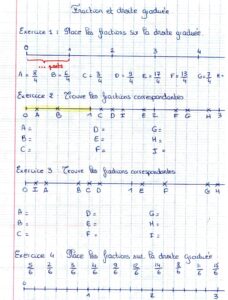 Fraction et droite graduée
Exercice 1 : Place les fractions sur la droite graduée.
0 1 2 3 4
... parts
A = 8/4 B = C = 3/4 D = 9/4 E = 17/4 F = 13/4 G = 7/4
Exercice 2 : Trouve les fractions correspondantes
0 A B 1 C D E 2 F G I 3 H
A = D = G =
B = E = H =
C = F = I =
Exercice 3 : Trouve les fractions correspondantes
0 I A B 1 C D E F G H 3
A = D = G =
B = E = H =
C = F = I =
Exercice 4 Place les fractions sur la droite graduée
5/6 2/6 4/6 9/6 8/6
0 1 2 3